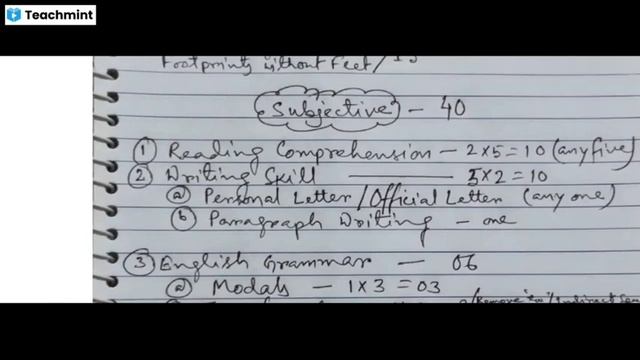 Teachmint
Footprints without Feet/
Subjective - 40
① Reading Comprehension - 2×5=10 (any five)
② Writing Skill ——— 5×2=10
ⓐ Personal Letter/Official Letter (any one)
ⓑ Paragraph Writing - one
③ English Grammar — 06
ⓐ Modals - 1×3=03